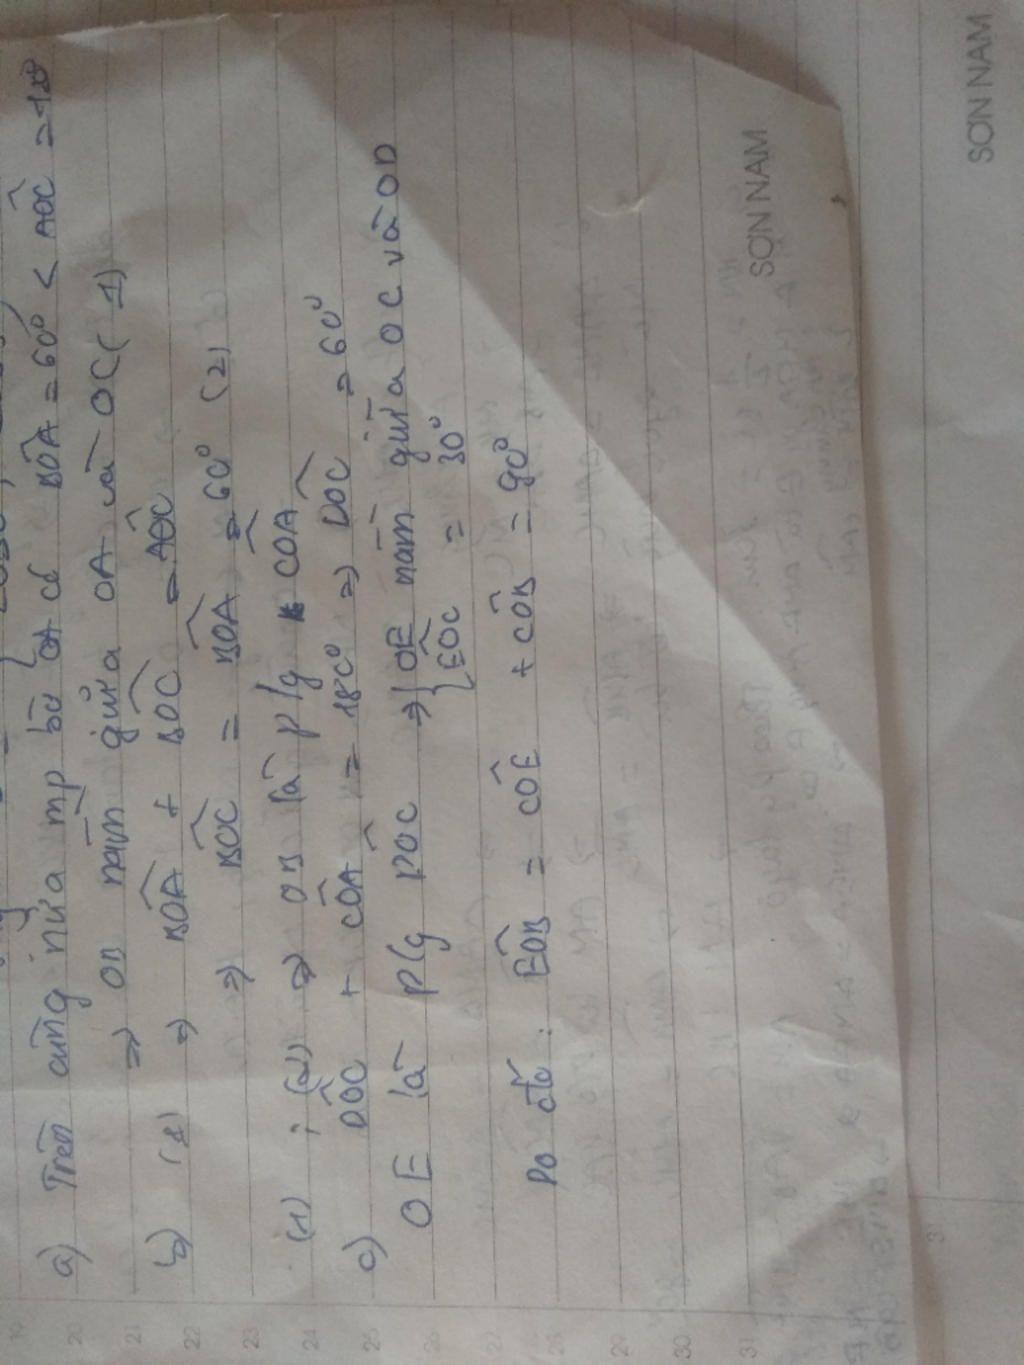 a) Trên cùng nửa mp bờ OA có BÔA = 60° < AÔC = 120°
⇒ OB nằm giữa OA và OC (1)
b) (1) ⇒ BÔA + BÔC = AÔC
⇒ BÔC = BÔA = 60° (2)
(1) ; (2) ⇒ OB là p/g CÔA
c) DÔC + CÔA = 180° ⇒ DÔC = 60°
OE là p/g DOC ⇒ { OE nằm giữa OC và OD
{ EÔC = 30°
Do đó : EÔB = CÔE + CÔB = 90°
SƠN NAM
SƠN NAM
19
20
21
22
23
24
25
26
27
28
29
30
31
3